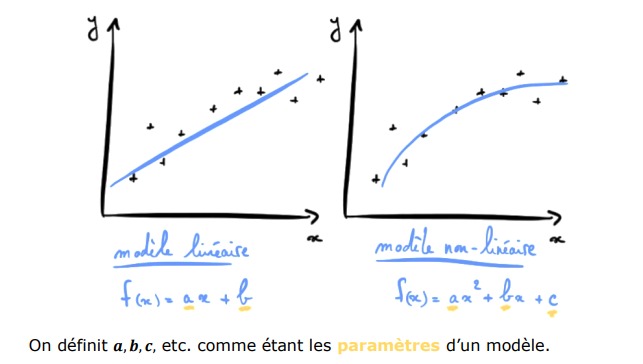 y y
x x
modèle linéaire modèle non-linéaire
f(x) = ax + b f(x) = ax² + bx + c
On définit a, b, c, etc. comme étant les paramètres d'un modèle.